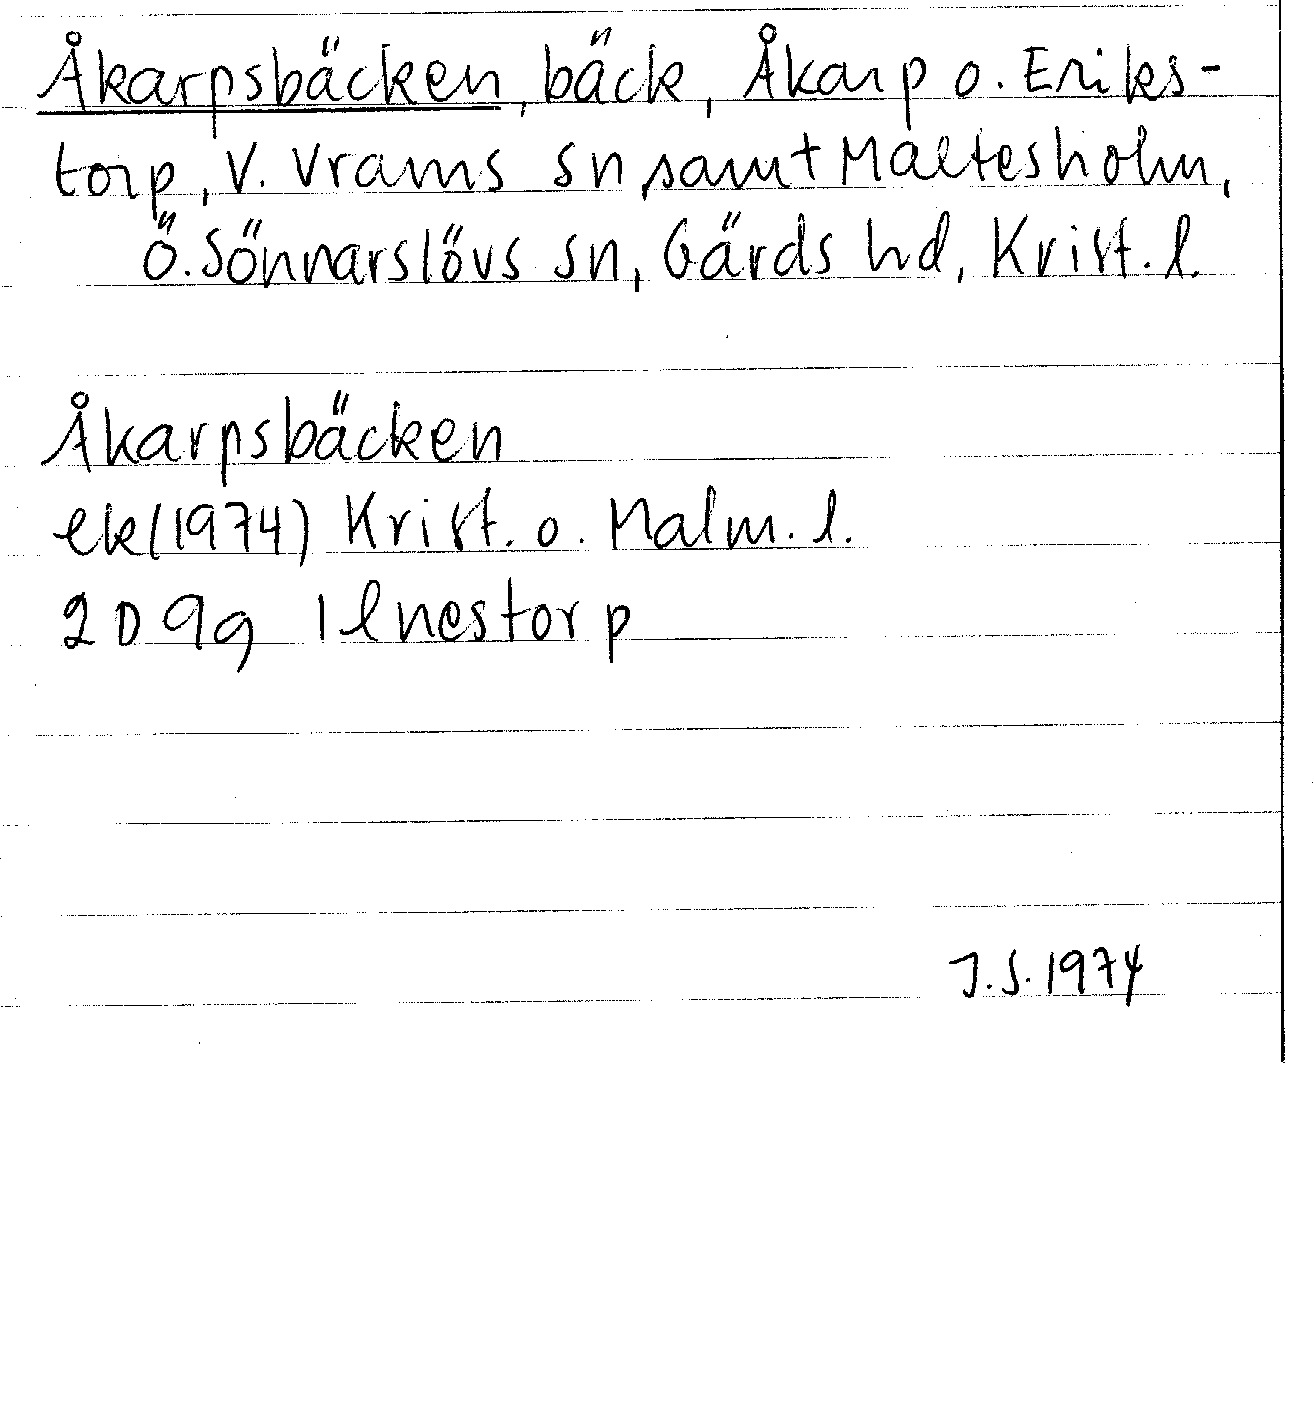 Åkarpsbäcken, bäck, Åkarp o. Eriks-
torp, V. Vrams sn samt Maltesholm,
Ö. Sönnarslövs sn, Gärds hd, Krist. l.
Åkarpsbäcken
ek (1974) Krist. o. Malm. l.
2D 9g Ilnestorp
J.S. 1974